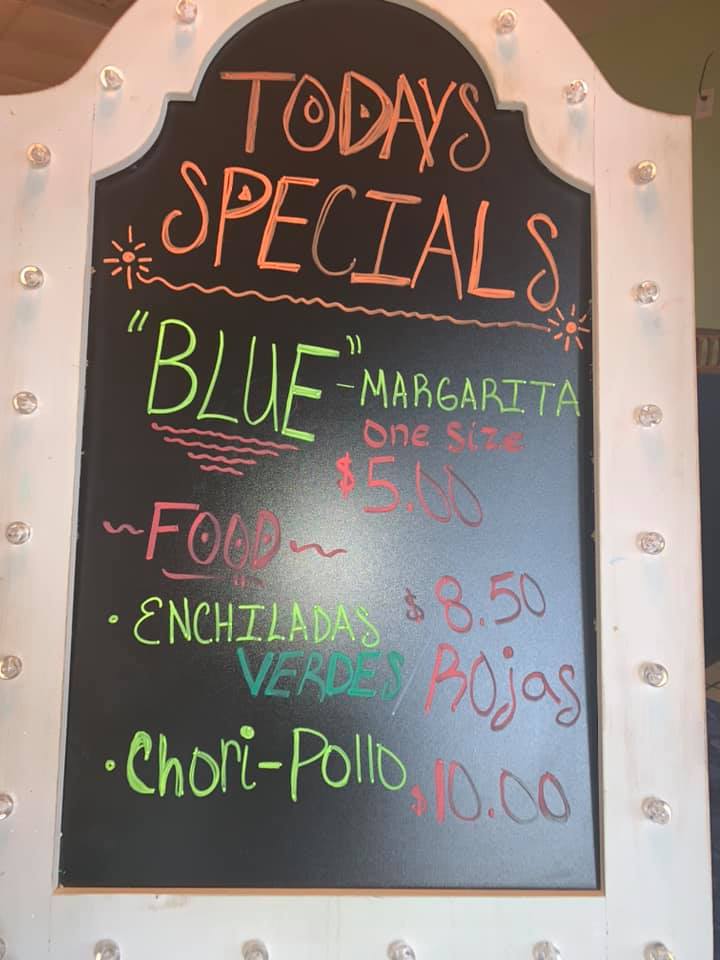 TODAYS
SPECIALS
"BLUE" - MARGARITA
One Size
$5.00
~FOOD~
• ENCHILADAS $8.50
VERDES/ROjas
• Chori-Pollo $10.00